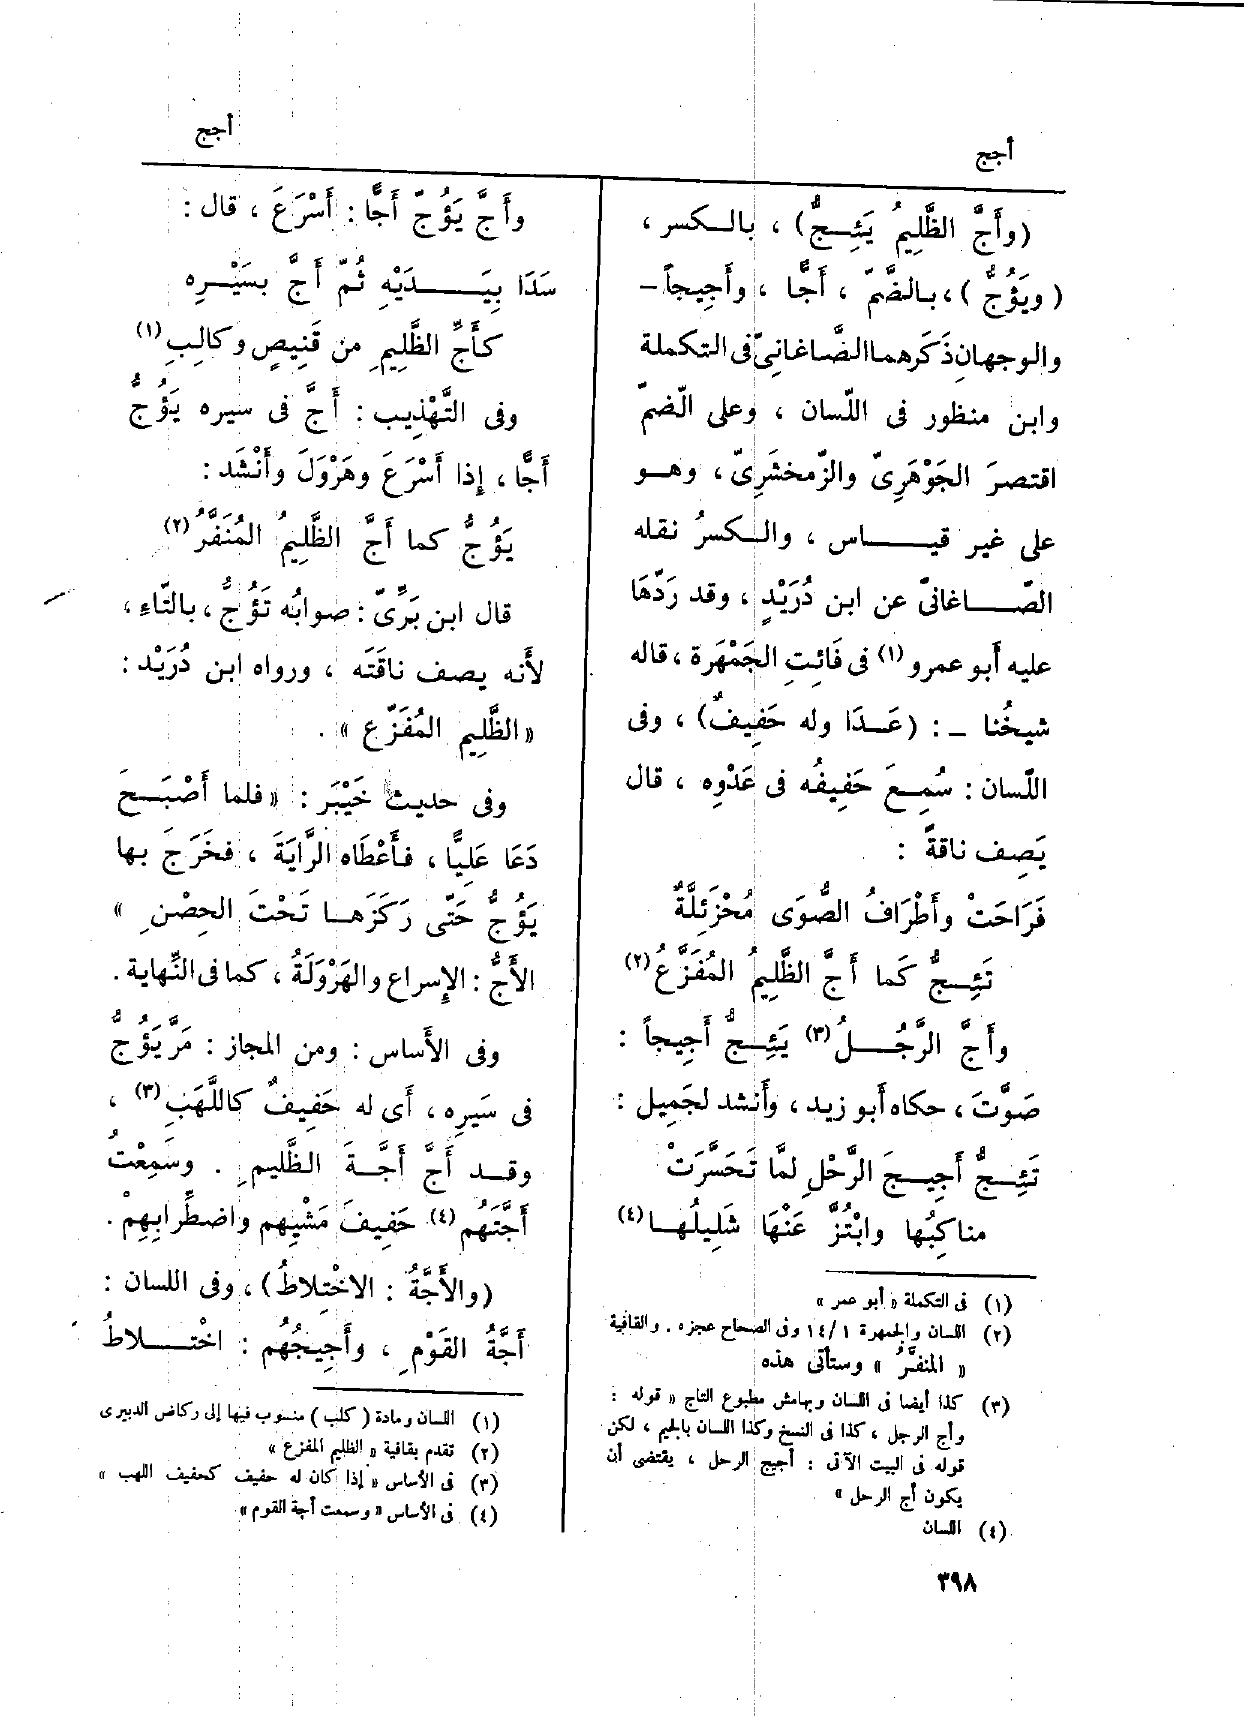 أجج
أجج
(وأَجَّ الظَّلِيمُ يَئِـجُّ) ، بالـكسر ،
(ويَؤُجُّ) ، بـالضَّمّ ، أَجًّا ، وأَجِيجاً –
والوجهانِ ذَكَرهما الصَّاغانِىّ فى التكملة
وابن منظور فى اللّسان ، وعلى الضمّ
اقتصرَ الجَوْهَرِىّ والزّمخشَرِىّ ، وهـو
على غير قيـــاس ، والـكسرُ نقله
الصّـــاغانىّ عن ابن دُرَيْدٍ ، وقد رَدَّهَا
عليه أبو عمرو (١) فى فَائِتِ الجَمْهَرة ، قاله
شيخُنا – : (عَـدَا وله حَفِيفٌ) ، وفى
اللّسان : سُمِعَ حَفِيفُه فى عَدْوِه ، قال
يَصِف ناقةً :
فَرَاحَتْ وأَطْرَافُ الصُّوَى مُحْزَئِلَّةٌ
تَئِـجُّ كَما أَجَّ الظَّلِيمُ المُفَزَّعُ (٢)
وأَجَّ الرَّجُـــلُ (٣) يَئِـجُّ أَجِيجاً :
صَوَّتَ ، حكاه أبو زيد ، وأَنشد لجَمِيل :
تَئِـجُّ أَجِيـجَ الرَّحْلِ لمَّا تَحَسَّرَتْ
مناكِبُها وابْتُزَّ عَنْهَا شَلِيلُهـا (٤)
(١) فى التكملة « أبو عمر »
(٢) اللسان والجمهرة ١ /١٤ وفى الصحاح عجزه . والقافية
« المنفَّرُ » وستأتى هذه
(٣) كذا أيضا فى اللسان وبهامش مطبوع التاج « قوله :
وأج الرجل ، كذا فى النسخ وكذا اللسان بالجيم ، لكن
قوله فى البيت الآتى : أجيج الرحل ، يقتضى أن
يكون أج الرحل »
(٤) اللسان
وأَجَّ يَؤُجّ أَجًّا : أَسْرَعَ ، قال :
سَدَا بِيَـــدَيْهِ ثُمّ أَجَّ بسَيْـرِه
كأَجِّ الظَّلِيمِ من قَنِيصٍ وكالِبِ (١)
وفى التَّهْذِيب : أَجَّ فى سيره يَؤُجُّ
أَجًّا ، إذا أَسْرَعَ وهَرْوَلَ وأَنْشَد :
يَؤُجُّ كما أَجَّ الظَّلِيمُ المُنَفَّرُ (٢)
قال ابن بَرِّىّ : صوابُه تَؤُجُّ ، بالتّاءِ ،
لأَنه يصف ناقَتَه ، ورواه ابن دُرَيْد :
« الظَّلِيم المُفَزّع » .
وفى حديث خَيْبَر : « فلما أَصْبَـحَ
دَعَا عَليًّا ، فـأَعْطَاه الرَّايَةَ ، فخَرَجَ بها
يَؤُجُّ حَتّى رَكَزَهـا تَحْتَ الحِصْنِ »
الأَجُّ : الإسراع والهَرْوَلَةُ ، كما فى النِّهاية .
وفى الأَساس : ومن المجاز : مَرَّ يَؤُجُّ
فى سَيرِه ، أَى له حَفِيفٌ كاللَّهَبِ (٣) ،
وقـد أَجَّ أَجَّـةَ الظَّليمِ . وسَمِعْتُ
أَجَّتَهُم (٤) حَفِيفَ مَشْيِهم واضطِّرابِهِمْ .
(والأَجَّةُ : الاخْتِلاطُ) ، وفى اللسان :
أَجَّةُ القَوْمِ ، وأَجِيجُهُم : اخْتــلاطُ
(١) اللسان ومادة ( كلب ) منسوب فيها إلى ركاض الدبيرى
(٢) تقدم بقافية « الظليم المفزع »
(٣) فى الأساس « إذا كان له حفيف كحفيف اللهب »
(٤) فى الأساس « وسمعت أجة القوم »
٣٩٨